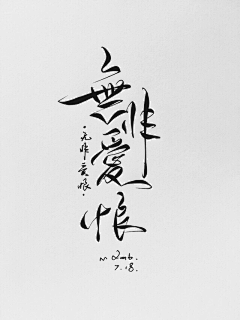 無非愛恨
·无非爱恨·
7.18.